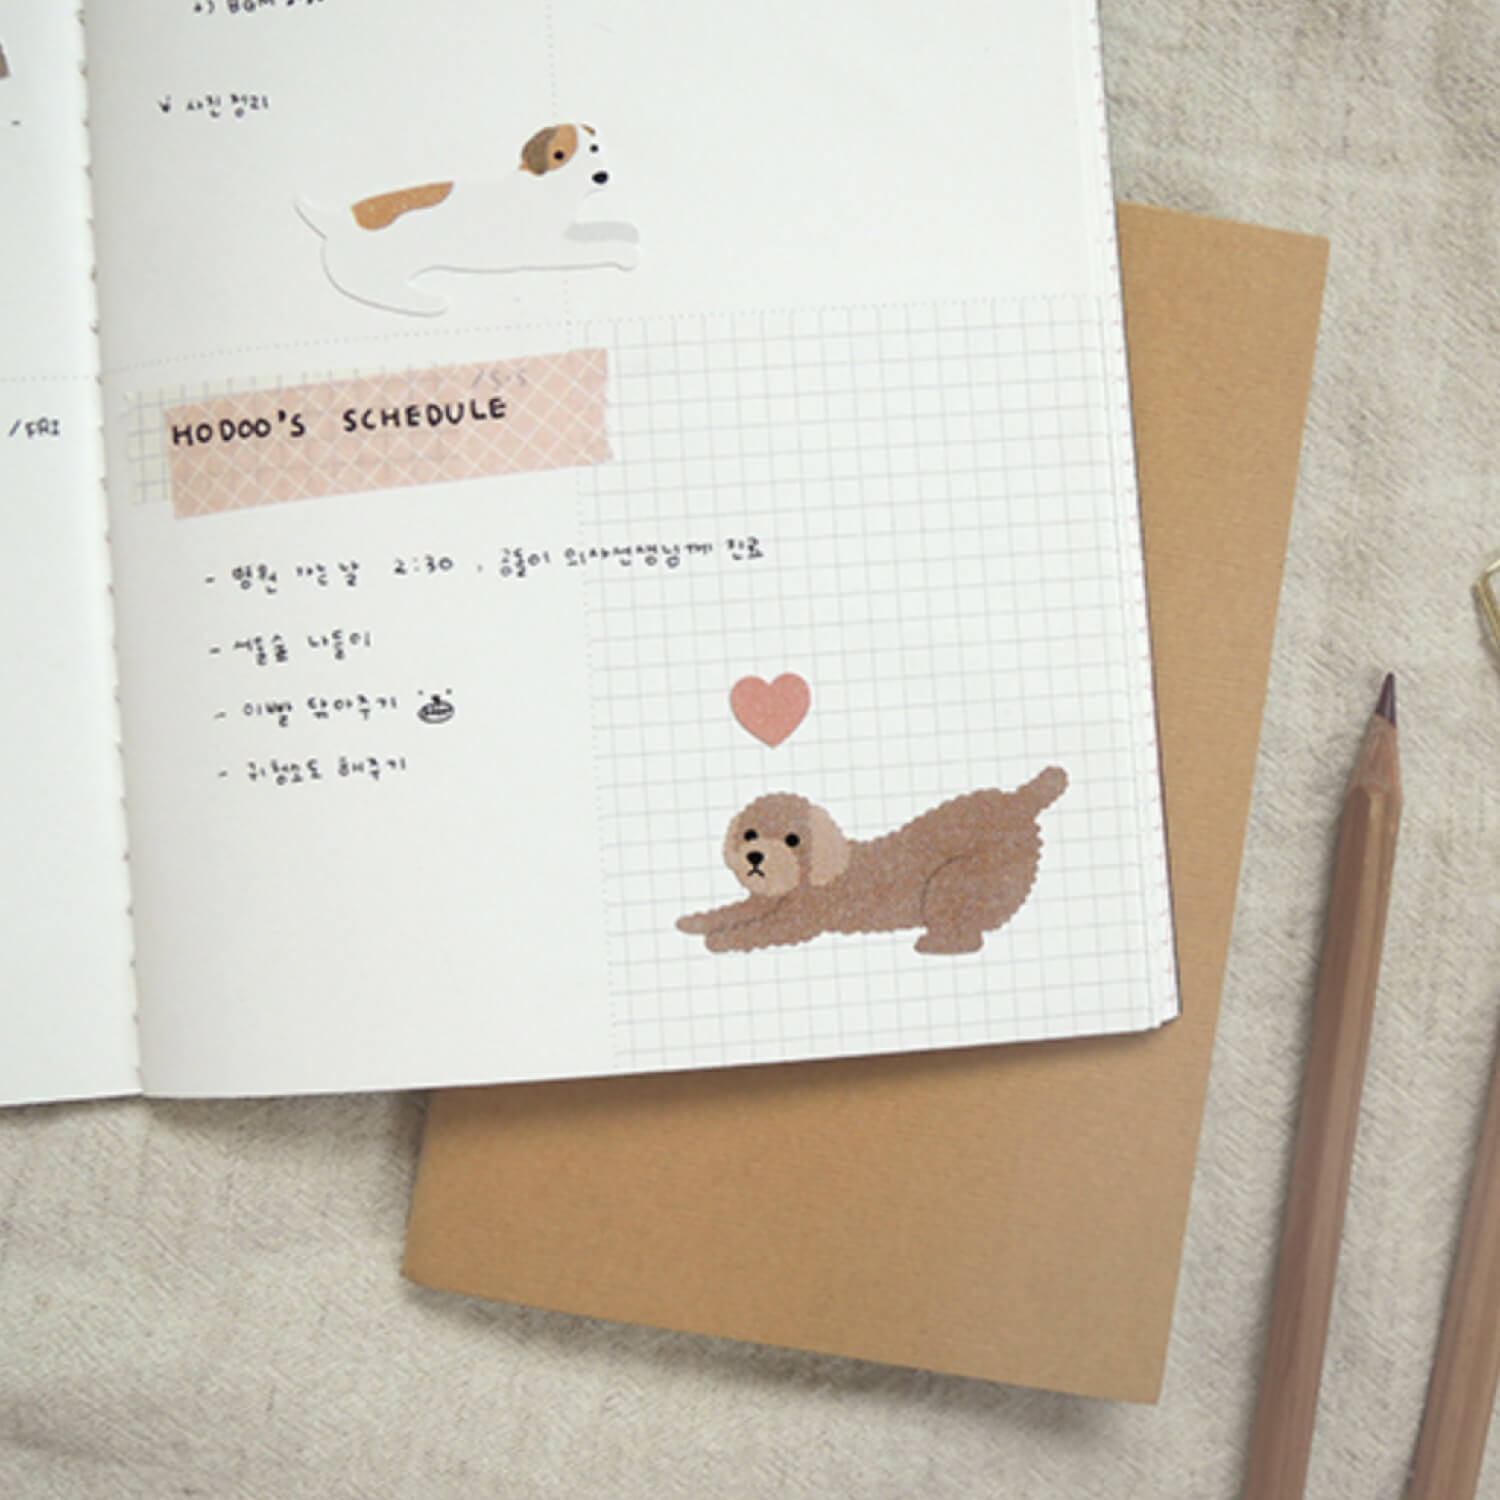 사진 정리
/FRI
/5.5
HODOO'S SCHEDULE
- 병원 가는 날 2:30 , 곰돌이 의사선생님께 진료
- 서울숲 나들이
- 이빨 닦아주기
- 귀청소도 해주기